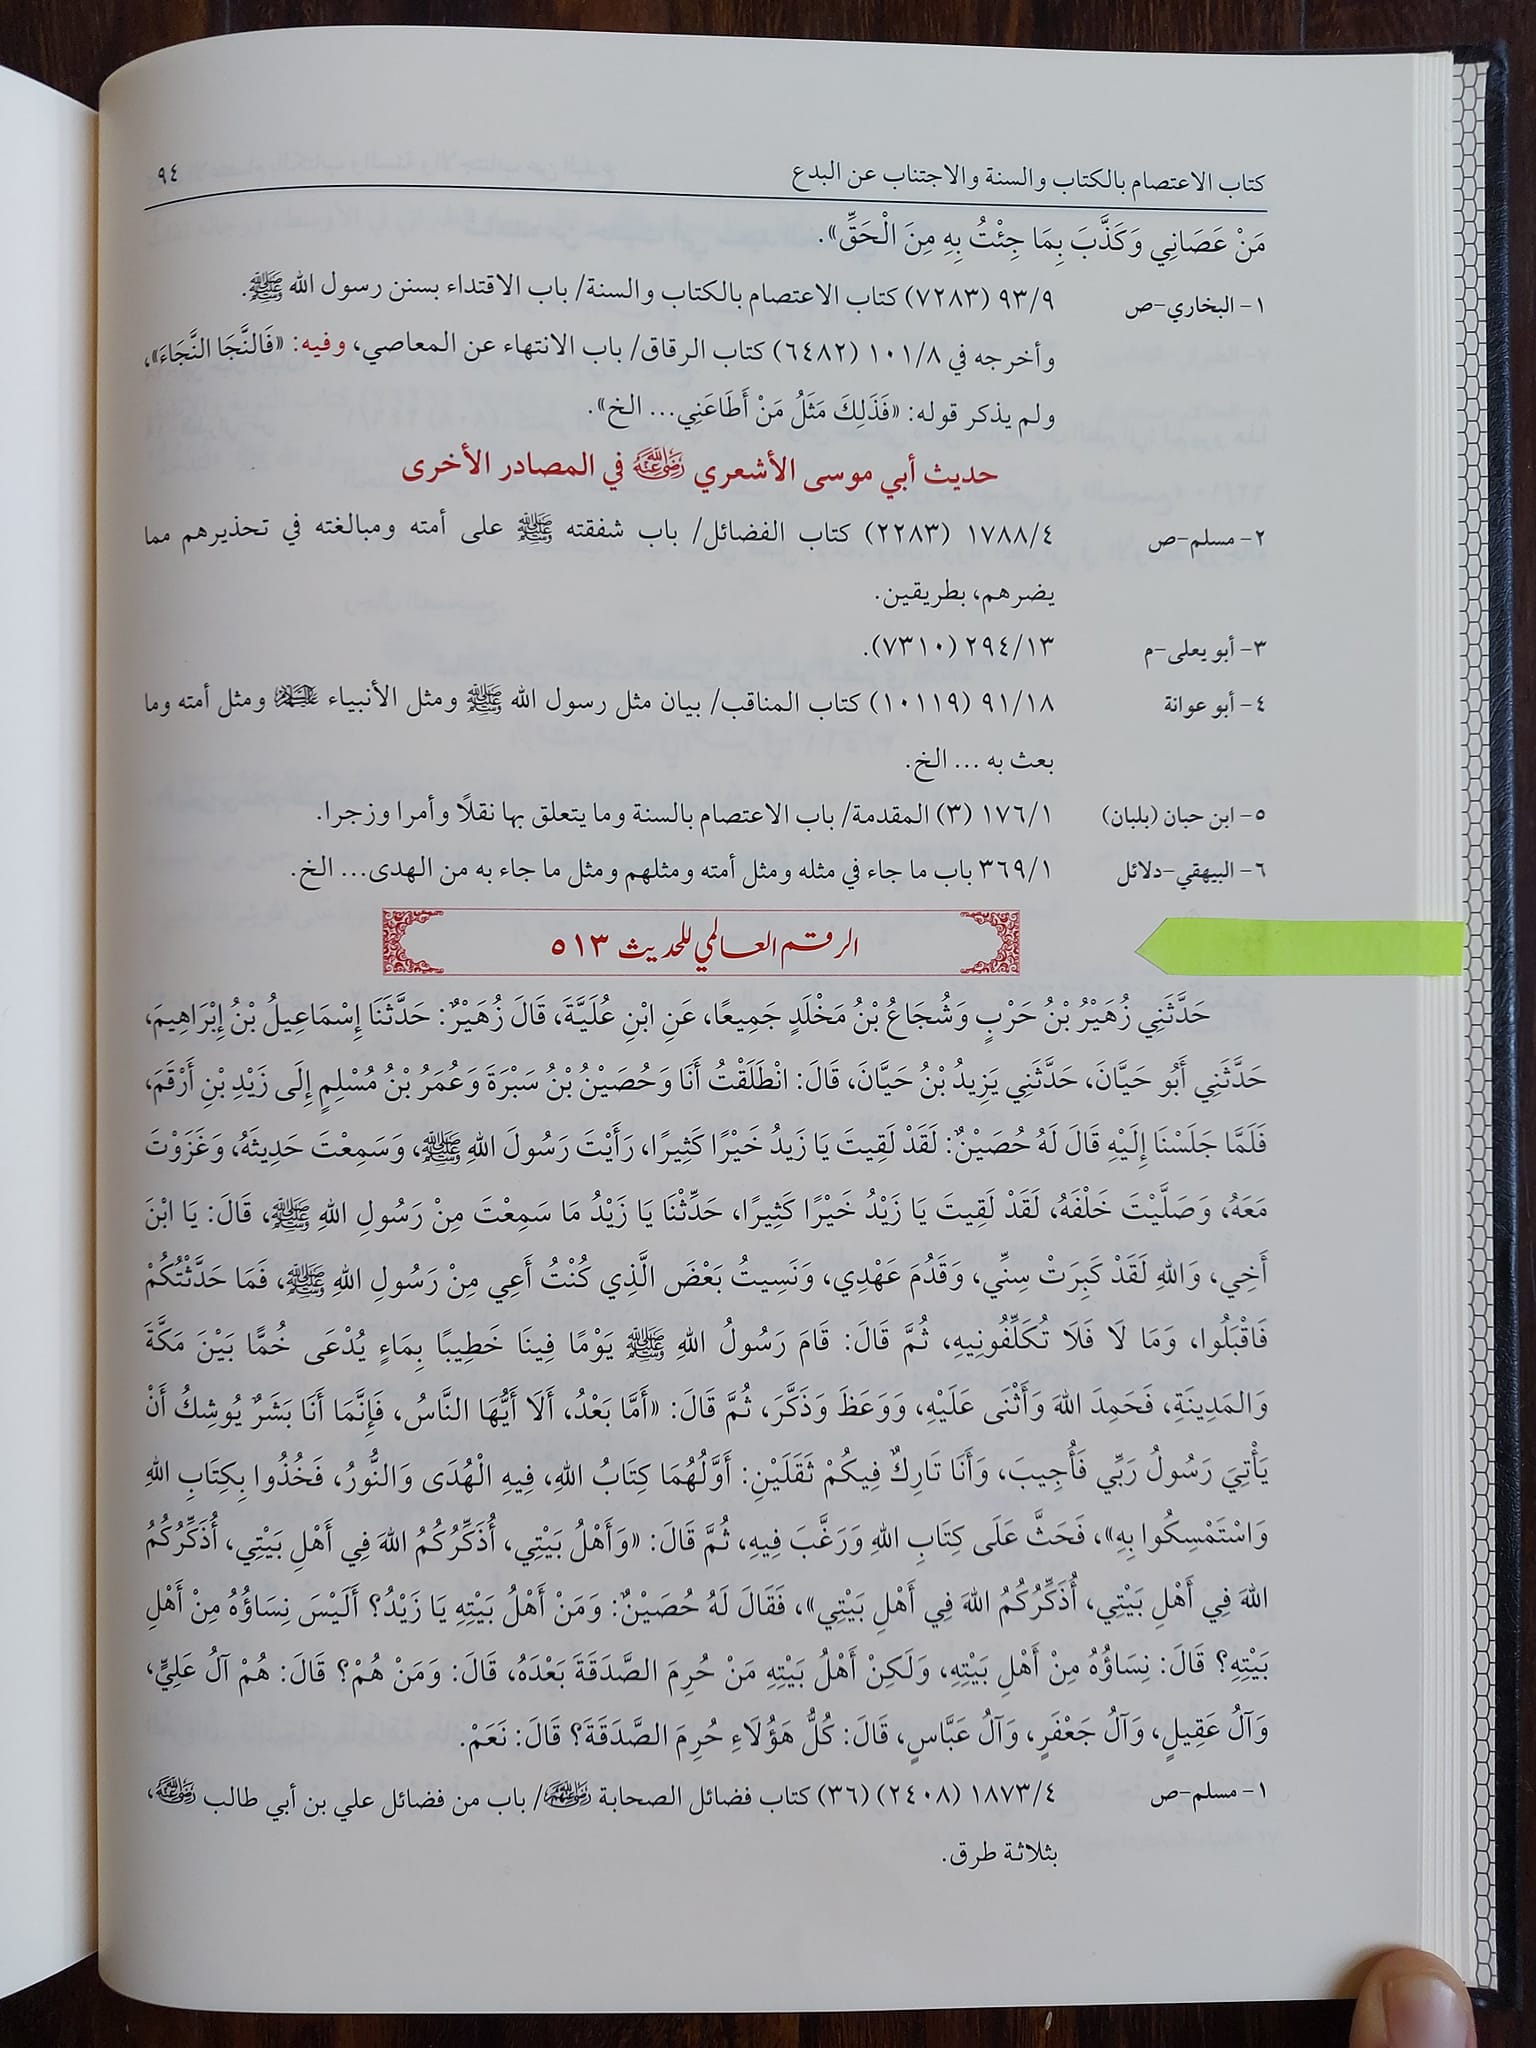 كتاب الاعتصام بالكتاب والسنة والاجتناب عن البدع ٩٤
مَنْ عَصَانِي وَكَذَّبَ بِمَا جِئْتُ بِهِ مِنَ الْحَقِّ».
١- البخاري-ص ٩٣/٩ (٧٢٨٣) كتاب الاعتصام بالكتاب والسنة/ باب الاقتداء بسنن رسول الله ﷺ.
وأخرجه في ١٠١/٨ (٦٤٨٢) كتاب الرقاق/ باب الانتهاء عن المعاصي، وفيه: «فَالنَّجَا النَّجَاءَ»،
ولم يذكر قوله: «فَذَلِكَ مَثَلُ مَنْ أَطَاعَنِي... الخ».
حديث أبي موسى الأشعري رضي الله عنه في المصادر الأخرى
٢- مسلم-ص ١٧٨٨/٤ (٢٢٨٣) كتاب الفضائل/ باب شفقته ﷺ على أمته ومبالغته في تحذيرهم مما
يضرهم، بطريقين.
٣- أبو يعلى-م ٢٩٤/١٣ (٧٣١٠).
٤- أبو عوانة ٩١/١٨ (١٠١١٩) كتاب المناقب/ بيان مثل رسول الله ﷺ ومثل الأنبياء عليهم السلام ومثل أمته وما
بعث به ... الخ.
٥- ابن حبان (بلبان) ١٧٦/١ (٣) المقدمة/ باب الاعتصام بالسنة وما يتعلق بها نقلًا وأمرا وزجرا.
٦- البيهقي-دلائل ٣٦٩/١ باب ما جاء في مثله ومثل أمته ومثلهم ومثل ما جاء به من الهدى... الخ.
الرقم العالمي للحديث ٥١٣
حَدَّثَنِي زُهَيْرُ بْنُ حَرْبٍ وَشُجَاعُ بْنُ مَخْلَدٍ جَمِيعًا، عَنِ ابْنِ عُلَيَّةَ، قَالَ زُهَيْرٌ: حَدَّثَنَا إِسْمَاعِيلُ بْنُ إِبْرَاهِيمَ،
حَدَّثَنِي أَبُو حَيَّانَ، حَدَّثَنِي يَزِيدُ بْنُ حَيَّانَ، قَالَ: انْطَلَقْتُ أَنَا وَحُصَيْنُ بْنُ سَبْرَةَ وَعُمَرُ بْنُ مُسْلِمٍ إِلَى زَيْدِ بْنِ أَرْقَمَ،
فَلَمَّا جَلَسْنَا إِلَيْهِ قَالَ لَهُ حُصَيْنٌ: لَقَدْ لَقِيتَ يَا زَيدُ خَيْرًا كَثِيرًا، رَأَيْتَ رَسُولَ اللهِ ﷺ، وَسَمِعْتَ حَدِيثَهُ، وَغَزَوْتَ
مَعَهُ، وَصَلَّيْتَ خَلْفَهُ، لَقَدْ لَقِيتَ يَا زَيْدُ خَيْرًا كَثِيرًا، حَدِّثْنَا يَا زَيْدُ مَا سَمِعْتَ مِنْ رَسُولِ اللهِ ﷺ، قَالَ: يَا ابْنَ
أَخِي، وَاللهِ لَقَدْ كَبِرَتْ سِنِّي، وَقَدُمَ عَهْدِي، وَنَسِيتُ بَعْضَ الَّذِي كُنْتُ أَعِي مِنْ رَسُولِ اللهِ ﷺ، فَمَا حَدَّثْتُكُمْ
فَاقْبَلُوا، وَمَا لَا فَلَا تُكَلِّفُونِيهِ، ثُمَّ قَالَ: قَامَ رَسُولُ اللهِ ﷺ يَوْمًا فِينَا خَطِيبًا بِمَاءٍ يُدْعَى خُمًّا بَيْنَ مَكَّةَ
وَالمَدِينَةِ، فَحَمِدَ اللهَ وَأَثْنَى عَلَيْهِ، وَوَعَظَ وَذَكَّرَ، ثُمَّ قَالَ: «أَمَّا بَعْدُ، أَلَا أَيُّهَا النَّاسُ، فَإِنَّمَا أَنَا بَشَرٌ يُوشِكُ أَنْ
يَأْتِيَ رَسُولُ رَبِّي فَأُجِيبَ، وَأَنَا تَارِكٌ فِيكُمْ ثَقَلَيْنِ: أَوَّلُهُمَا كِتَابُ اللهِ، فِيهِ الْهُدَى وَالنُّورُ، فَخُذُوا بِكِتَابِ اللهِ
وَاسْتَمْسِكُوا بِهِ»، فَحَثَّ عَلَى كِتَابِ اللهِ وَرَغَّبَ فِيهِ، ثُمَّ قَالَ: «وَأَهْلُ بَيْتِي، أُذَكِّرُكُمُ اللهَ فِي أَهْلِ بَيْتِي، أُذَكِّرُكُمُ
اللهَ فِي أَهْلِ بَيْتِي، أُذَكِّرُكُمُ اللهَ فِي أَهْلِ بَيْتِي»، فَقَالَ لَهُ حُصَيْنٌ: وَمَنْ أَهْلُ بَيْتِهِ يَا زَيْدُ؟ أَلَيْسَ نِسَاؤُهُ مِنْ أَهْلِ
بَيْتِهِ؟ قَالَ: نِسَاؤُهُ مِنْ أَهْلِ بَيْتِهِ، وَلَكِنْ أَهْلُ بَيْتِهِ مَنْ حُرِمَ الصَّدَقَةَ بَعْدَهُ، قَالَ: وَمَنْ هُمْ؟ قَالَ: هُمْ آلُ عَلِيٍّ،
وَآلُ عَقِيلٍ، وَآلُ جَعْفَرٍ، وَآلُ عَبَّاسٍ، قَالَ: كُلُّ هَؤُلَاءِ حُرِمَ الصَّدَقَةَ؟ قَالَ: نَعَمْ.
١- مسلم-ص ١٨٧٣/٤ (٢٤٠٨) (٣٦) كتاب فضائل الصحابة رضي الله عنهم/ باب من فضائل علي بن أبي طالب رضي الله عنه،
بثلاثة طرق.